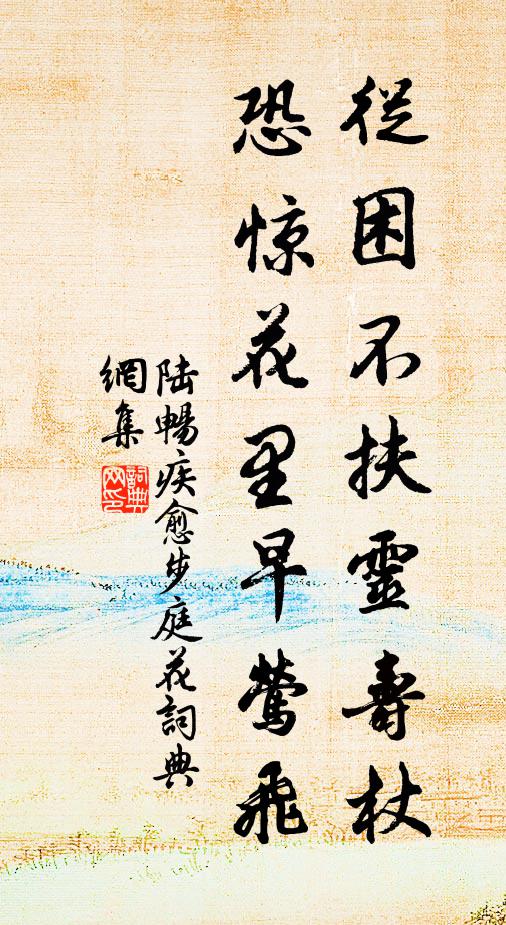 從困不扶靈壽杖
恐惊花里早莺飛
陆暢疾愈步庭花詞典
網集
詞典
网印